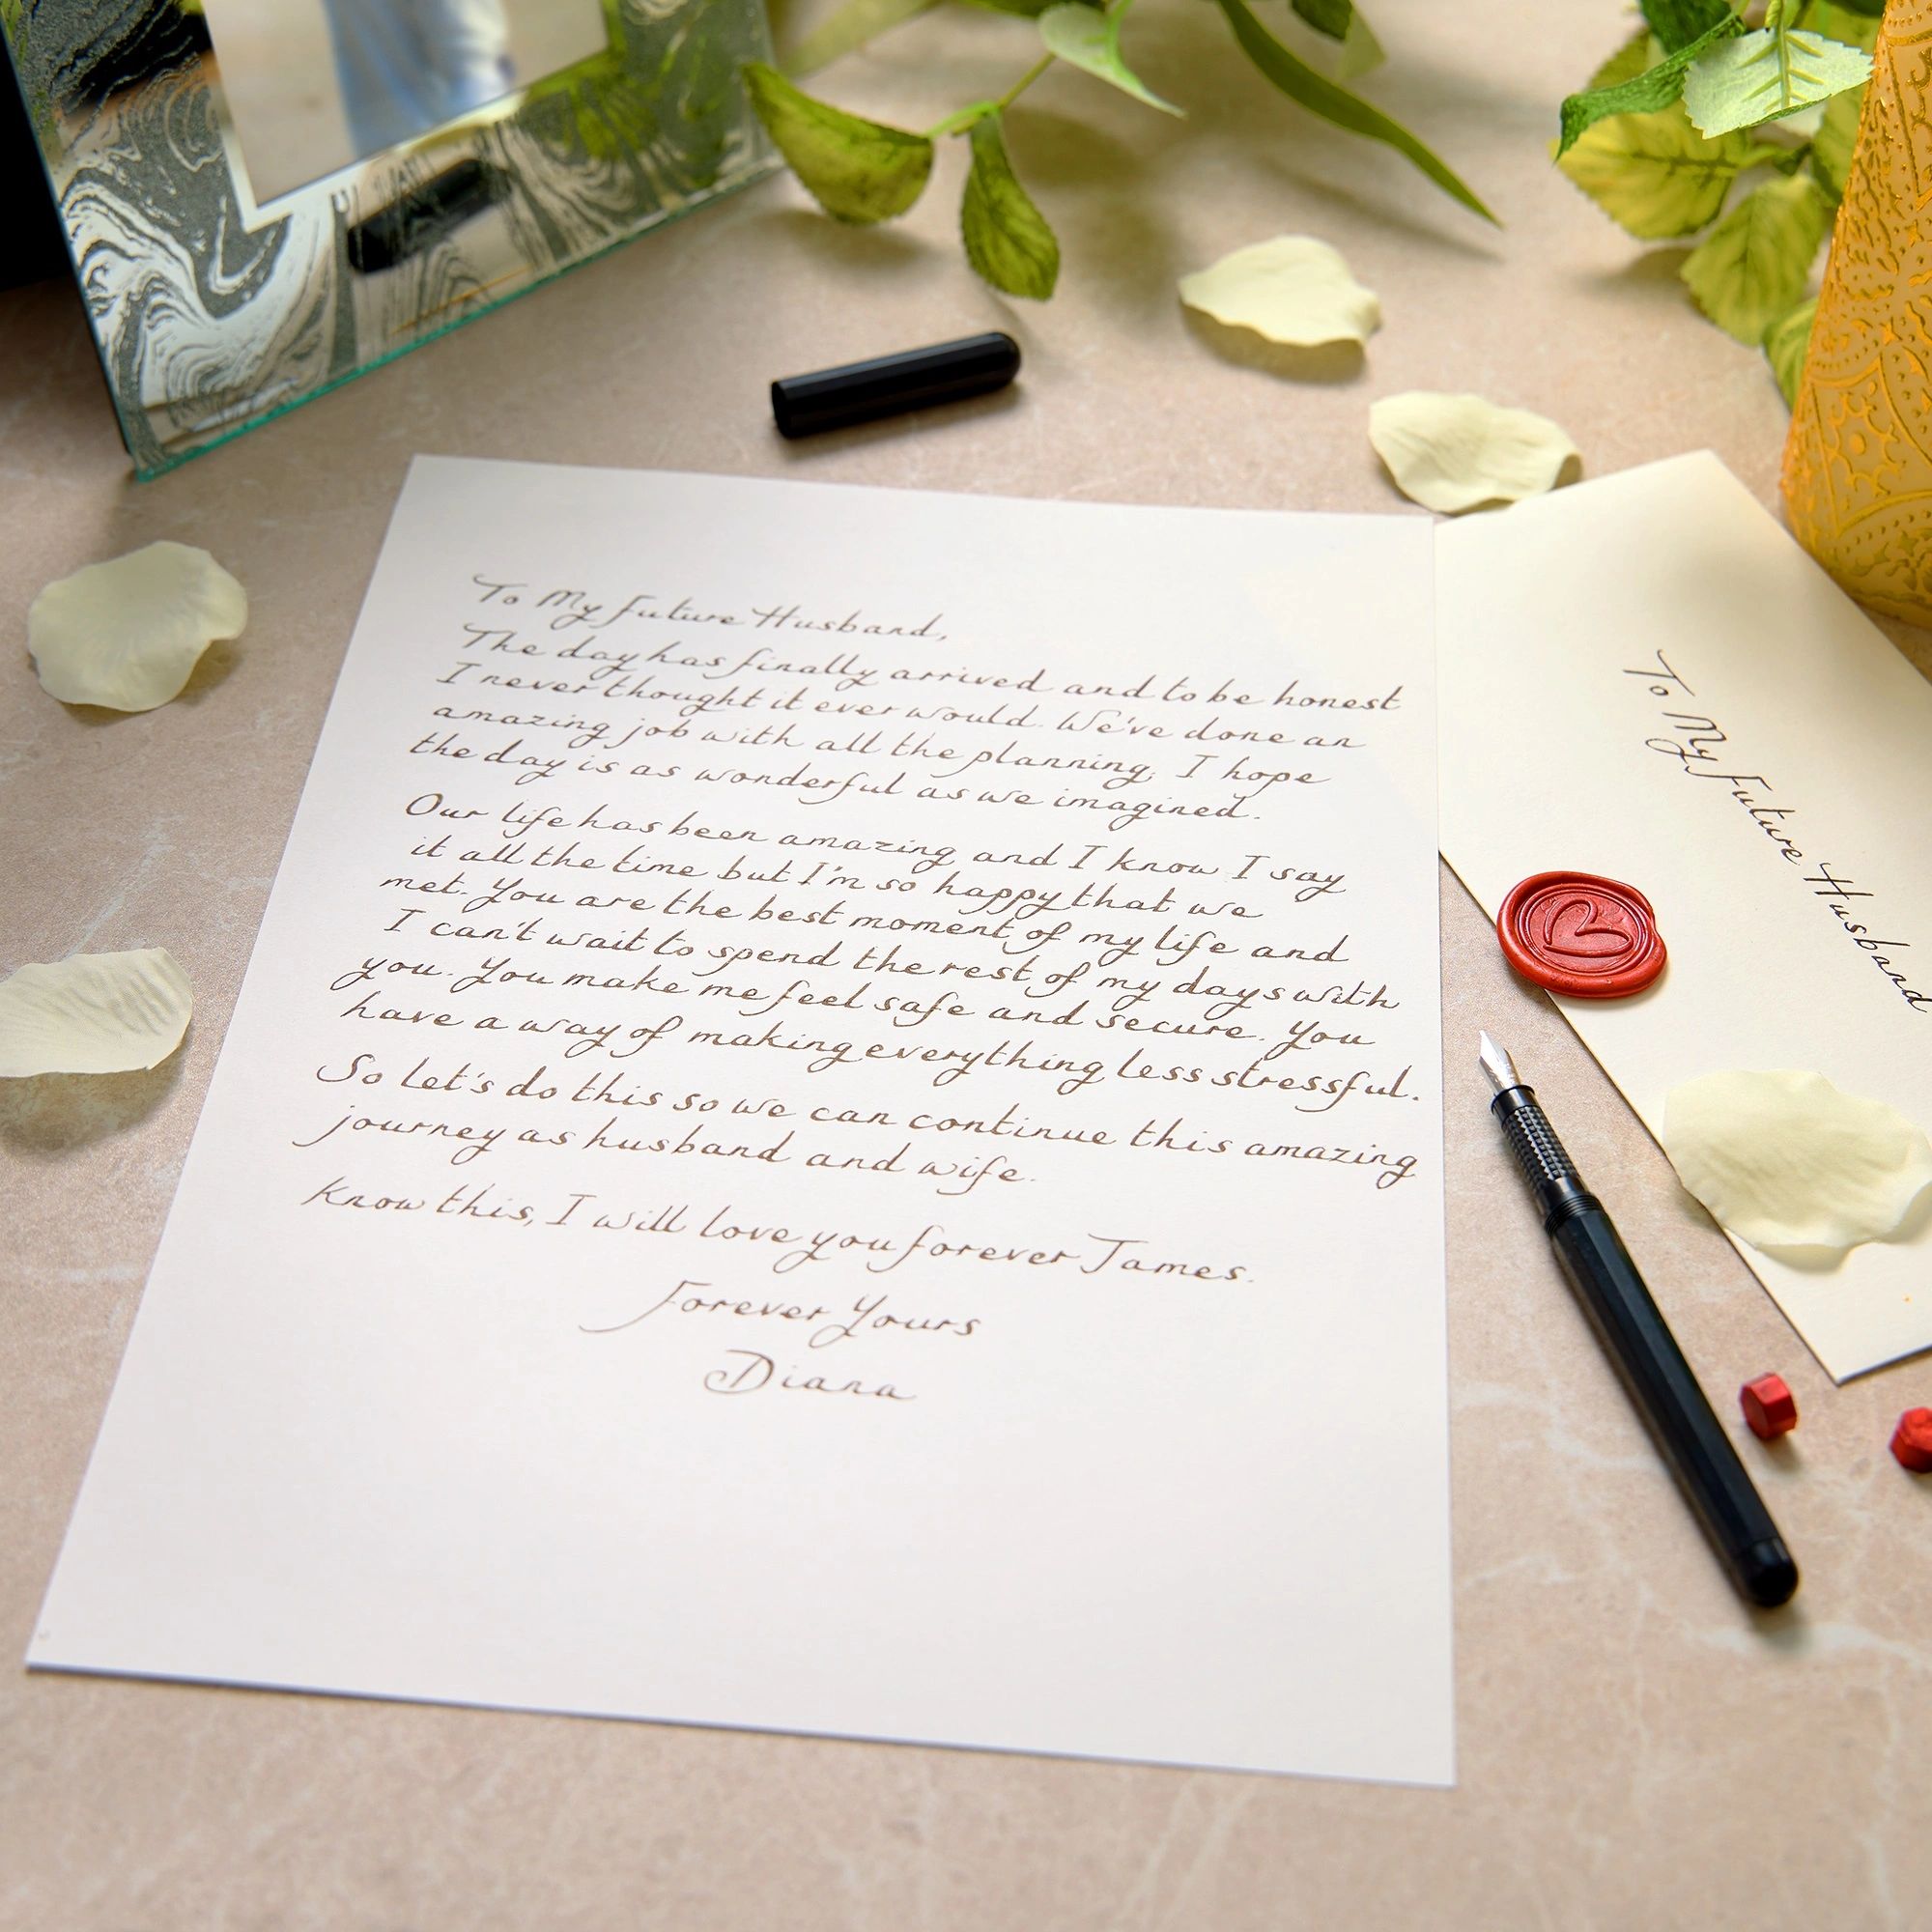 To My Future Husband,
The day has finally arrived and to be honest
I never thought it ever would. We've done an
amazing job with all the planning, I hope
the day is as wonderful as we imagined.
Our life has been amazing and I know I say
it all the time but I'm so happy that we
met. You are the best moment of my life and
I can't wait to spend the rest of my days with
you. You make me feel safe and secure. You
have a way of making everything less stressful.
So let's do this so we can continue this amazing
journey as husband and wife.
Know this, I will love you forever James.
Forever Yours
Diana
To My Future Husband